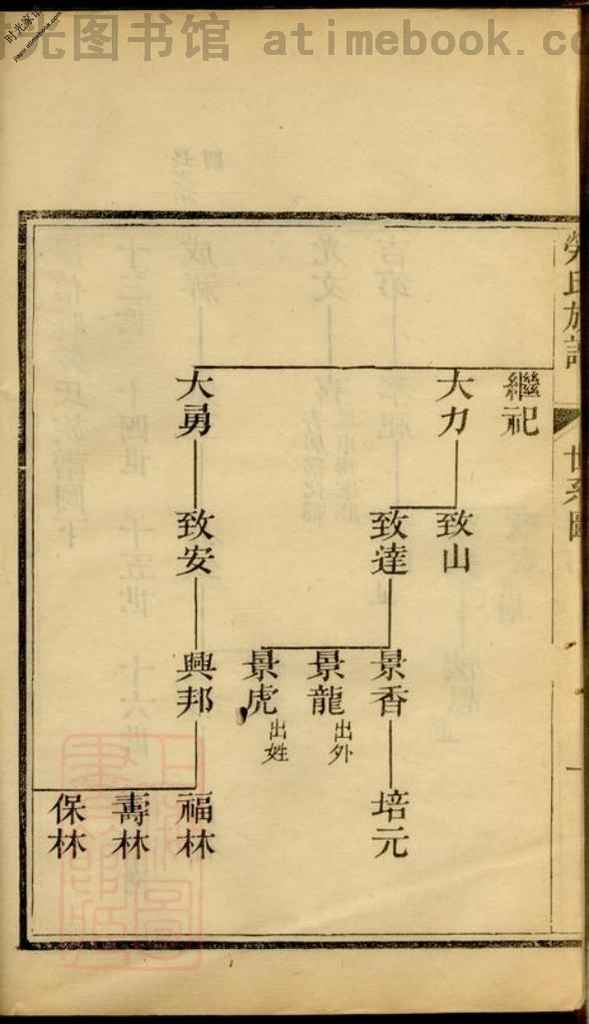 时光图书馆 atimebook.co
勞氏族譜
世系圖
繼祀
大力
大勇
致山
致達
致安
景香
景龍 出外
景虎 出姓
興邦
培元
福林
壽林
保林